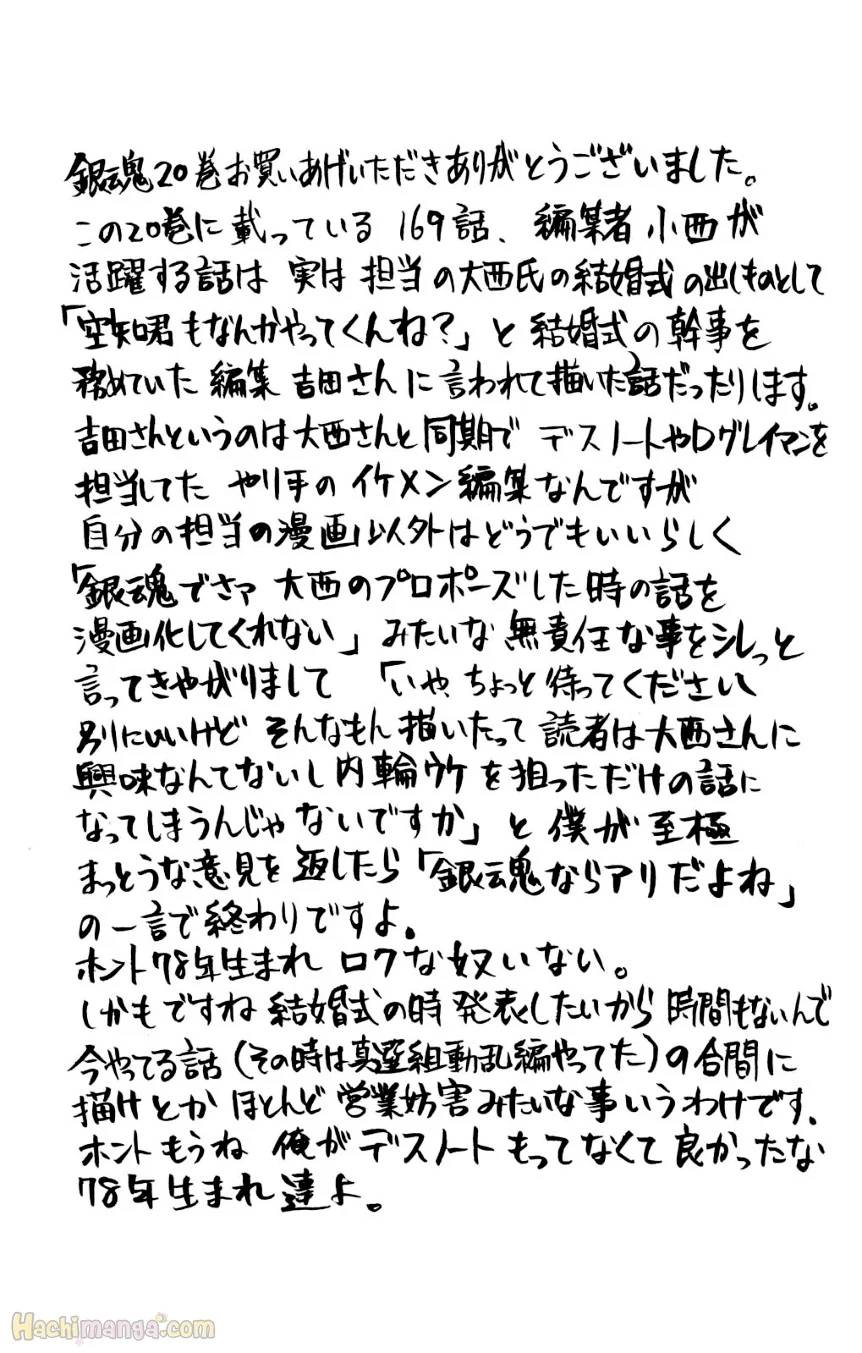 銀魂20巻お買いあげいただきありがとうございました。
この20巻に載っている169話、編集者小西が
活躍する話は 実は担当の大西氏の結婚式の出しものとして
「空知君もなんかやってくんね?」と結婚式の幹事を
務めていた編集吉田さんに言われて描いた話だったりします。
吉田さんというのは大西さんと同期で デスノートやDグレイマンを
担当してた やり手のイケメン編集なんですが
自分の担当の漫画以外はどうでもいいらしく
「銀魂でさァ 大西のプロポーズした時の話を
漫画化してくれない」みたいな無責任な事をシレっと
言ってきやがりまして 「いや、ちょっと待ってください
別にいいけど そんなもん描いたって読者は大西さんに
興味なんてないし内輪ウケを狙っただけの話に
なってしまうんじゃないですか」と僕が至極
まっとうな意見を返したら「銀魂ならアリだよね」
の一言で終わりですよ。
ホント78年生まれ ロクな奴いない。
しかもですね 結婚式の時発表したいから時間もないんで
今やってる話(その時は真選組動乱編やってた)の合間に
描けとか ほとんど営業妨害みたいな事いうわけです。
ホントもうね 俺がデスノートもってなくて良かったな
78年生まれ達よ。
Hachimanga.com